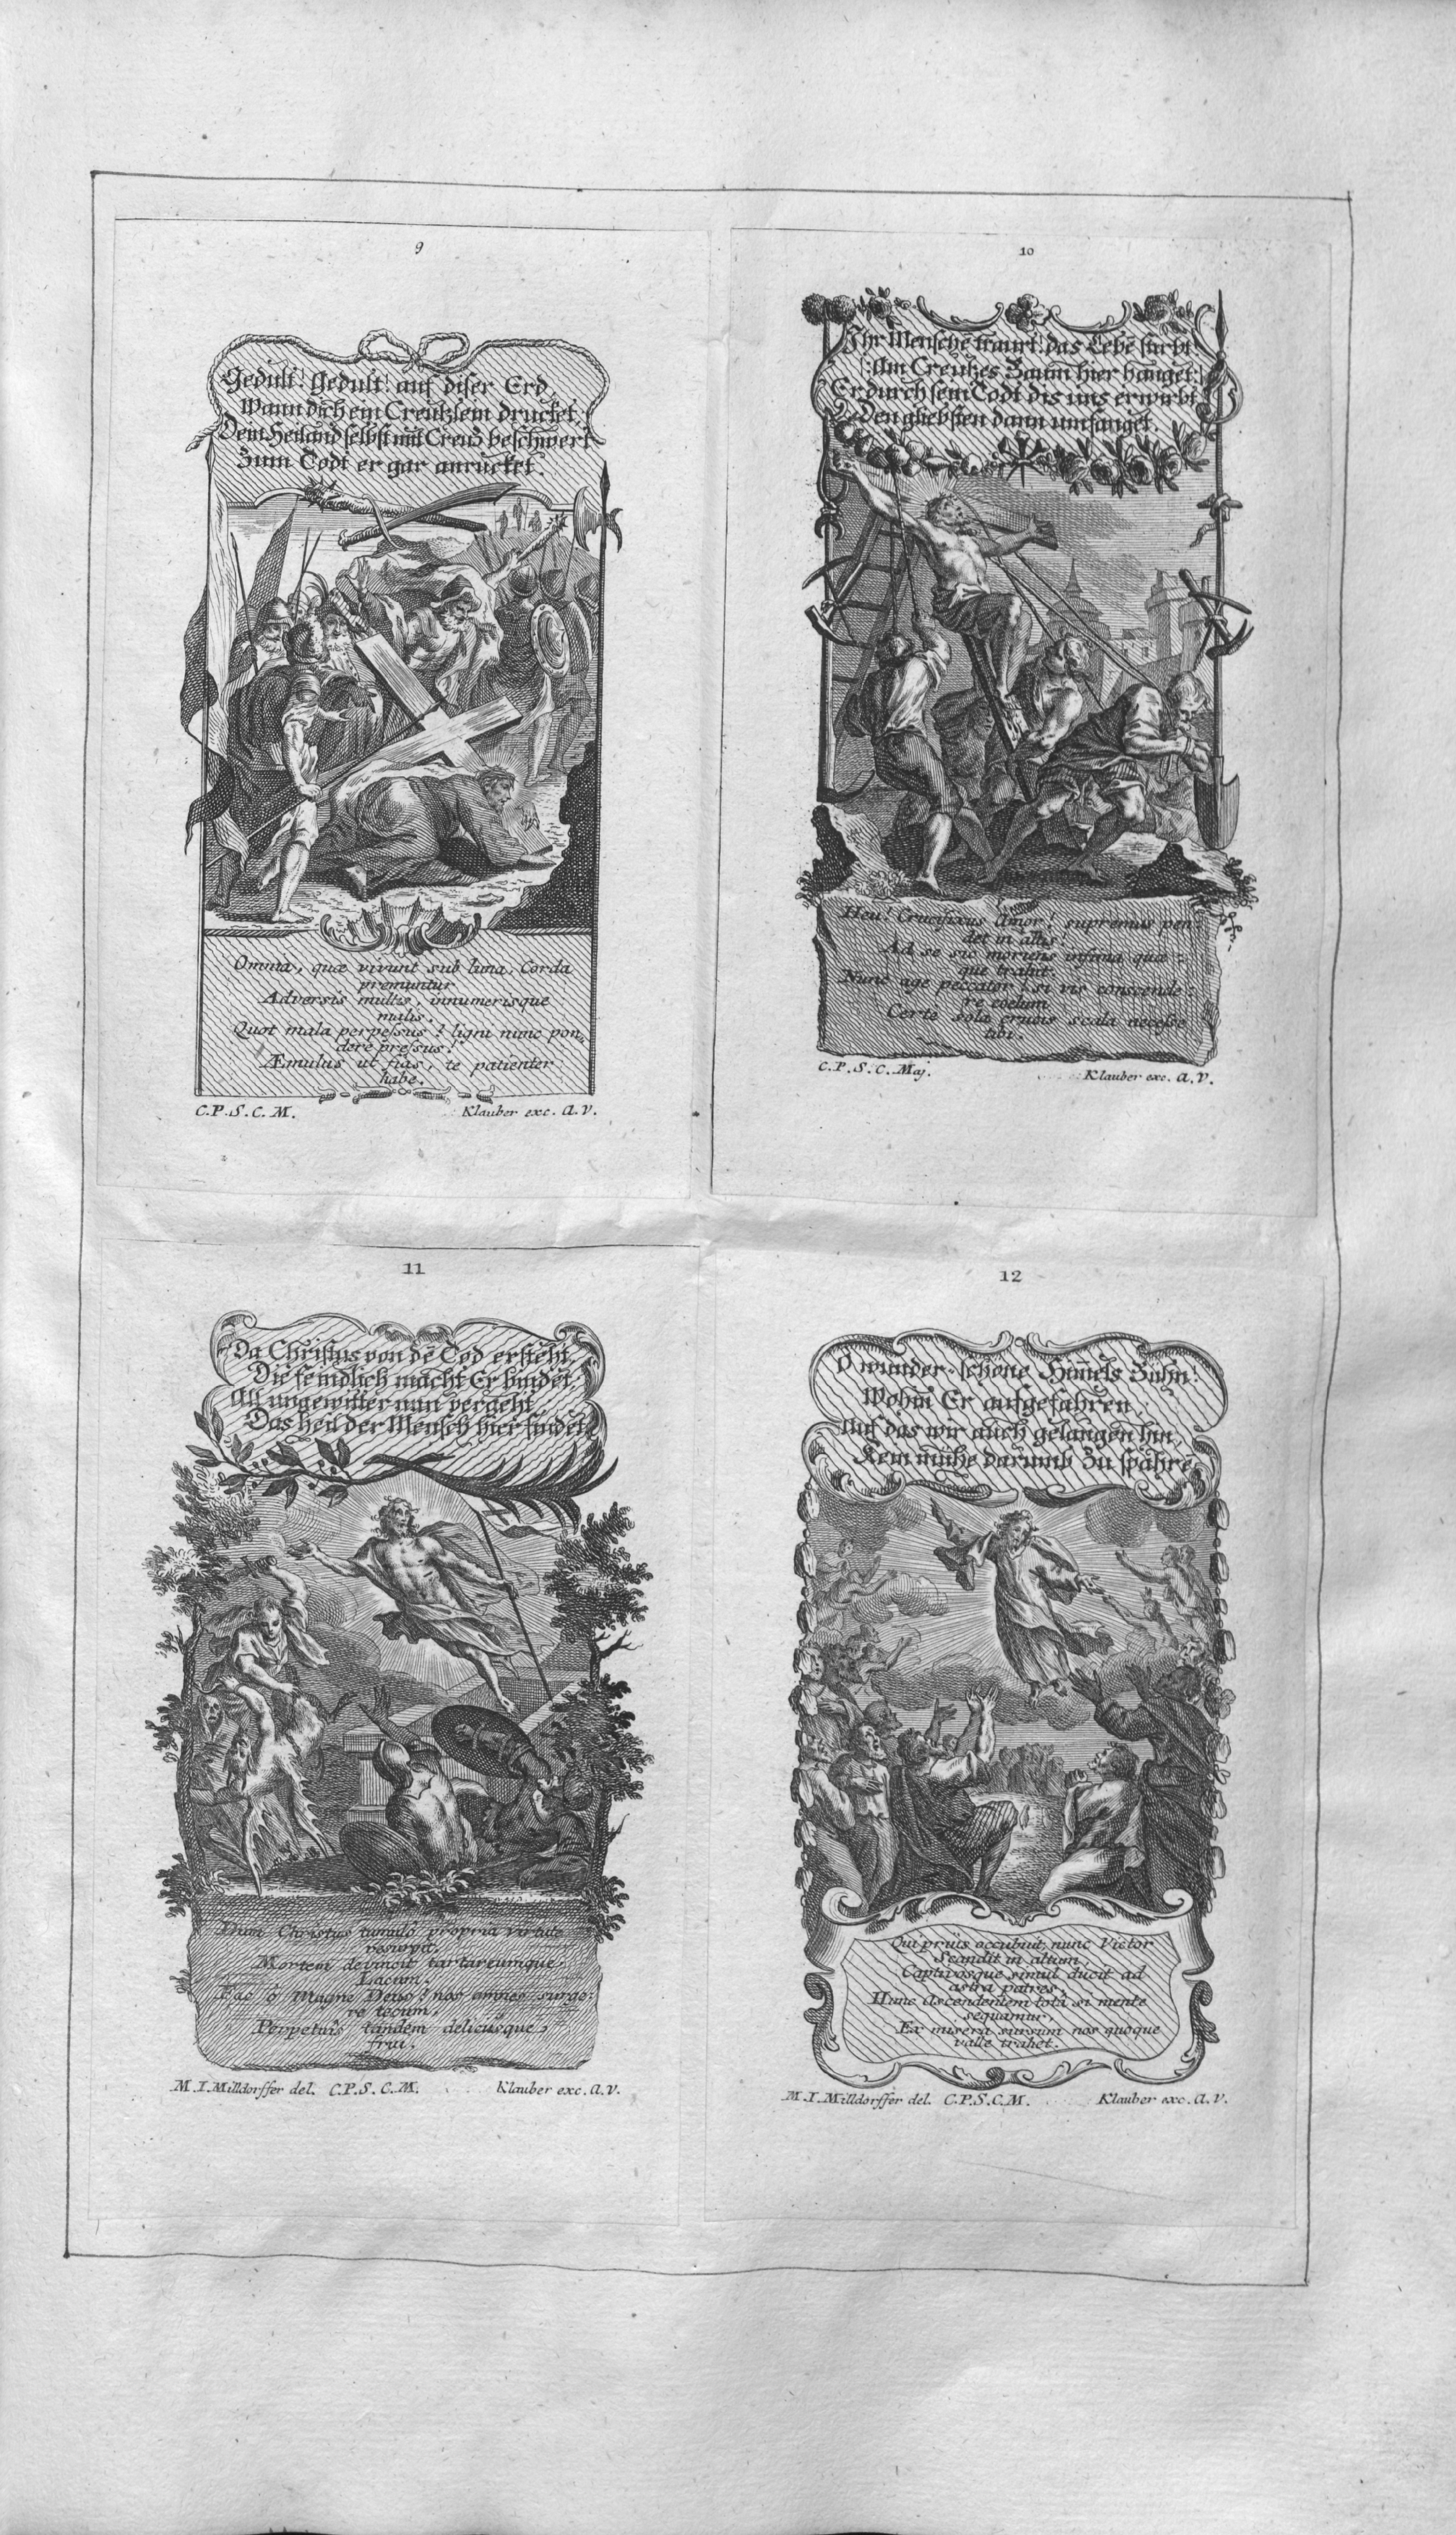 9
Gedult! Gedult! auf diser Erd,
Wann dich ein Creutzlein drucket,
Dein Heiland selbst mit Creutz beschwert
Zum Todt er gar anrucket.
Omnia, quæ vivunt sub luna, Corda
premuntur
Adversis multis, innumerisque
malis.
Quot mala perpessus! ligni nunc pon-
dere pressus!
Æmulus ut fias, te patienter
habe.
C.P.S.C.M.
Klauber exc. A.V.
10
Ihr Menschē traurt! das Lebē stirbt!
Am Creutzes Baum hier hanget:
Er durch sein Todt dis uns erwirbt
Den gliebsten dann umfanget.
Heu! Crucifixus Amor! supremus pen:
det in altis!
Ad se sic moriens infima quæ:
que trahit.
Nunc age peccator! si vis conscende:
re coelum
Certe sola crucis scala necesse
tibi.
C.P.S.C. Maj.
Klauber exc. A.V.
11
Da Christus von dē Tod ersteht,
Die feindlich macht Er bindet,
All ungewitter nun vergeht,
Das heil der Mensch hier findet.
Dum Christus tumulo propria virtute
resurgit,
Mortem devincit tartareumque
Lacum.
Fac ô Magne Deus! nos omnes surge:
re tecum,
Perpetuis tandem deliciisque
frui.
M.I. Milldorffer del. C.P.S.C.M.
Klauber exc. A.V.
12
O wunder-schöne Himels Bühn!
Wohin Er aufgefahren,
Auf das wir auch gelangen hin,
Kein mühe darumb zu spahrē
Qui priùs occubuit, nunc Victor
Scandit in altum,
Captivosque simul ducit ad
astra patres.
Hunc Ascendentem totâ si mente
sequamur,
Ex misera sursum nos quoque
valle trahet.
M.I. Milldorffer del. C.P.S.C.M.
Klauber exc. A.V.